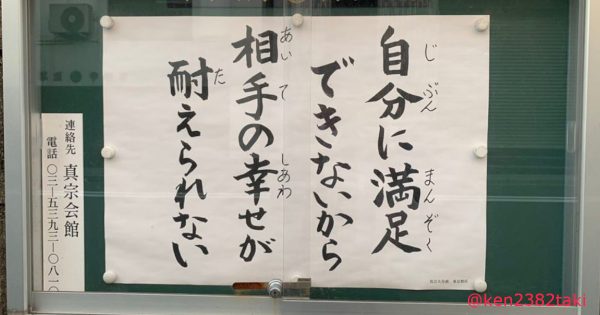 じ ぶん まん ぞく
自分に満足
できないから
あい て しあわ
相手の幸せが
た
耐えられない
連絡先 真宗会館
電話 〇三―五三九三―〇八一〇
@ken2382taki